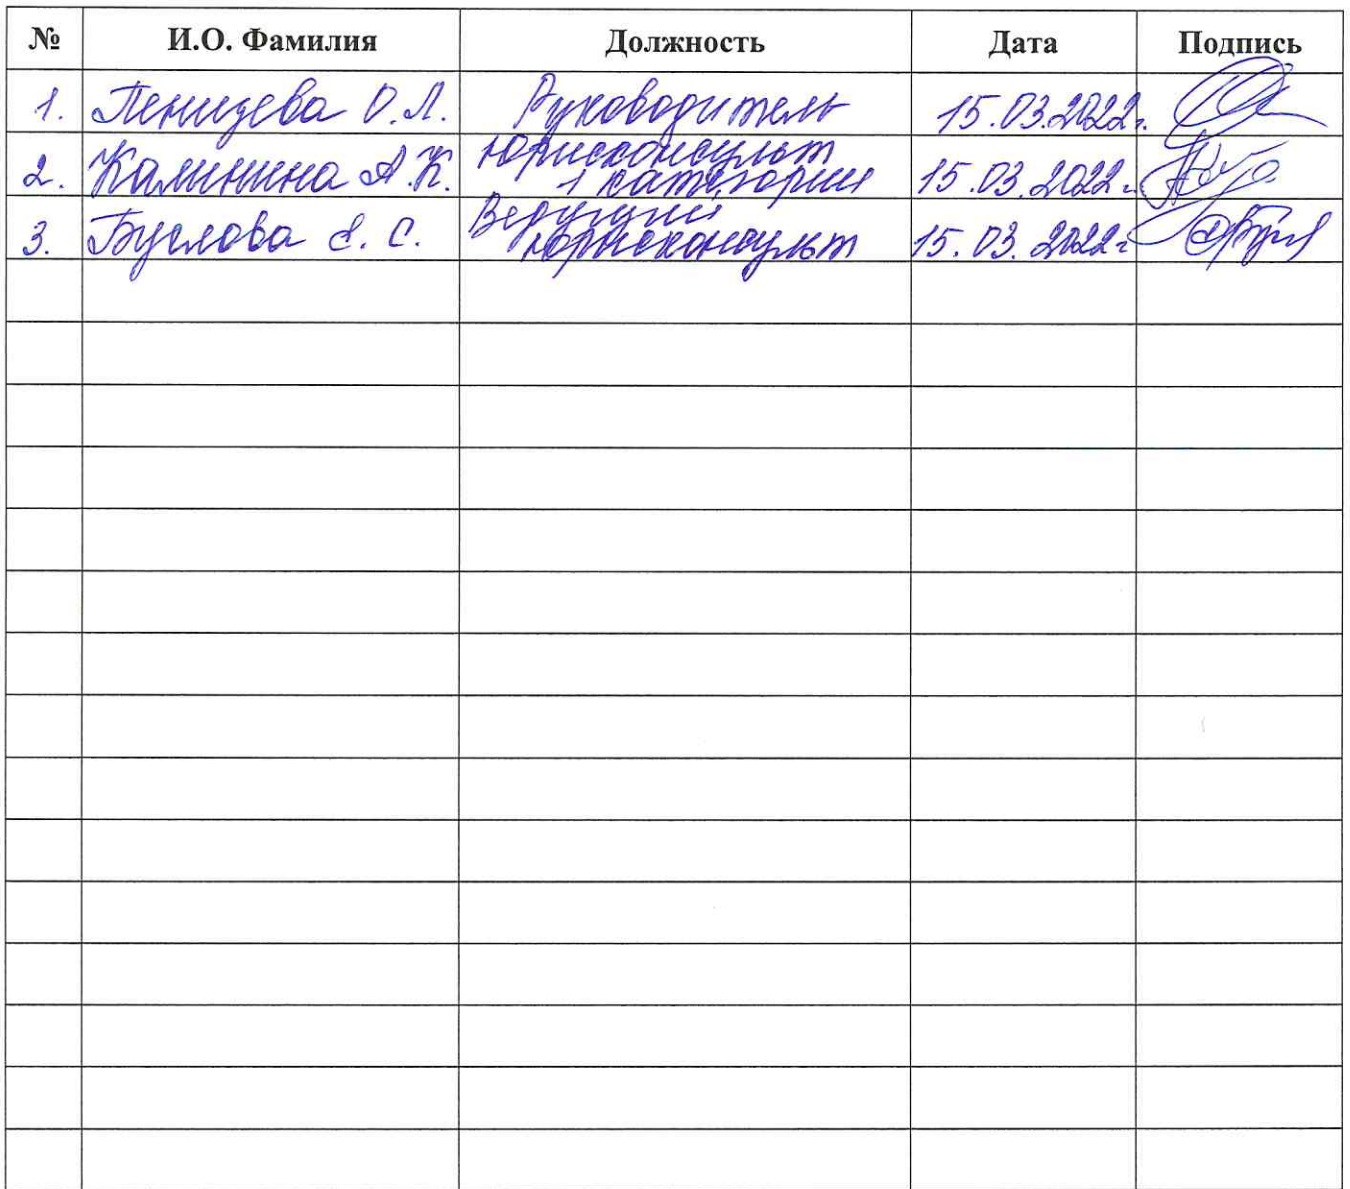 № И.О. Фамилия Должность Дата Подпись
1. О.Л. Руководитель 15.03.2022г.
2. Калинина А.К. Юрисконсульт 1 категории 15.03.2022г.
3. Буслова Е.С. Ведущий юрисконсульт 15.03.2022г